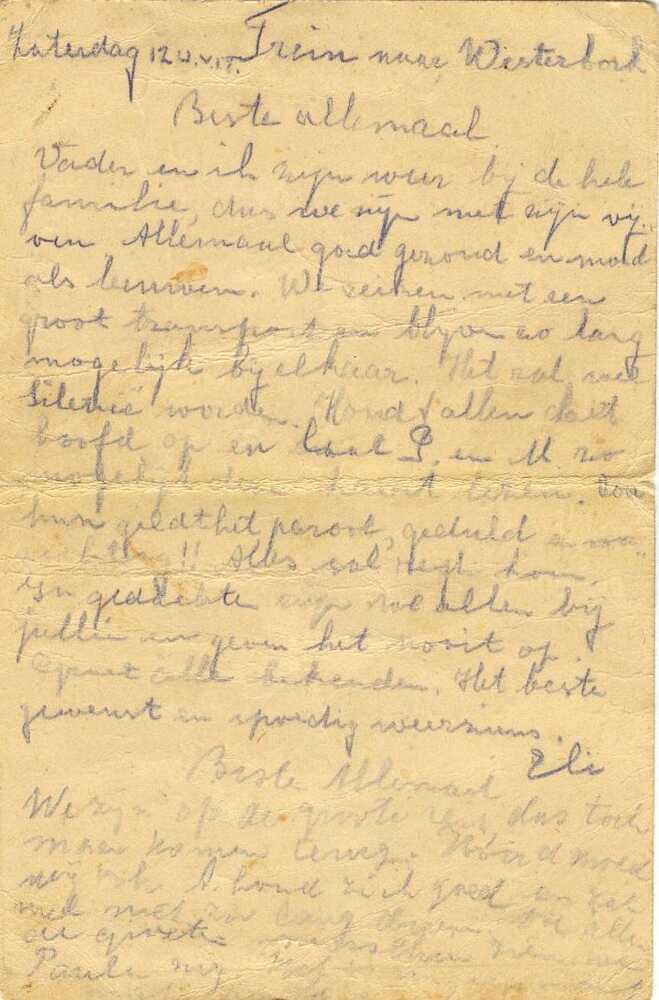 Zaterdag 12 u. v.m. Trein naar Westerbork
Beste allemaal
Vader en ik zijn weer bij de hele
familie, dus we zijn met zijn vij-
ven Allemaal goed gezond en moed
als leeuwen. We reizen met een
groot transport en blijven zo lang
mogelijk bij elkaar. Het zal wel
Silezië worden. Houdt allen het
hoofd op en laat P. en M. zo
mogelijk deze kaart lezen. Voor
hun geldt het parool, geduld en
!! Alles zal regt kom.
In gedachten zijn we allen bij
jullie en geven het nooit op.
Groet alle bekenden. Het beste
gewenst en spoedig weerziens.
Eli
Beste Allemaal
We zijn op de groote reis dus toch
maar komen terug. Houd moed
wij ook. houd zich goed en zal
met niet zo lang duren. allen
de groeten
Paula